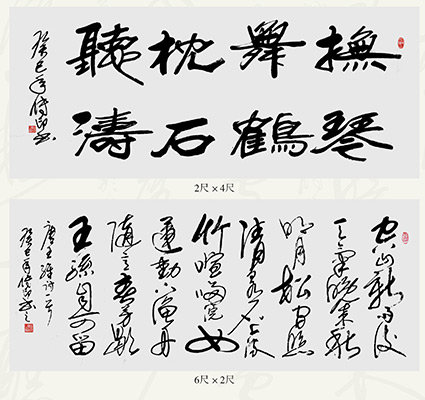 撫琴
舞鶴
枕石
聽濤
癸巳年
2尺×4尺
空山新雨後
天氣晚來秋
明月松間照
清泉石上流
竹喧歸浣女
蓮動下漁舟
隨意春芳歇
王孫自可留
唐王維詩一首
癸巳年
6尺×2尺